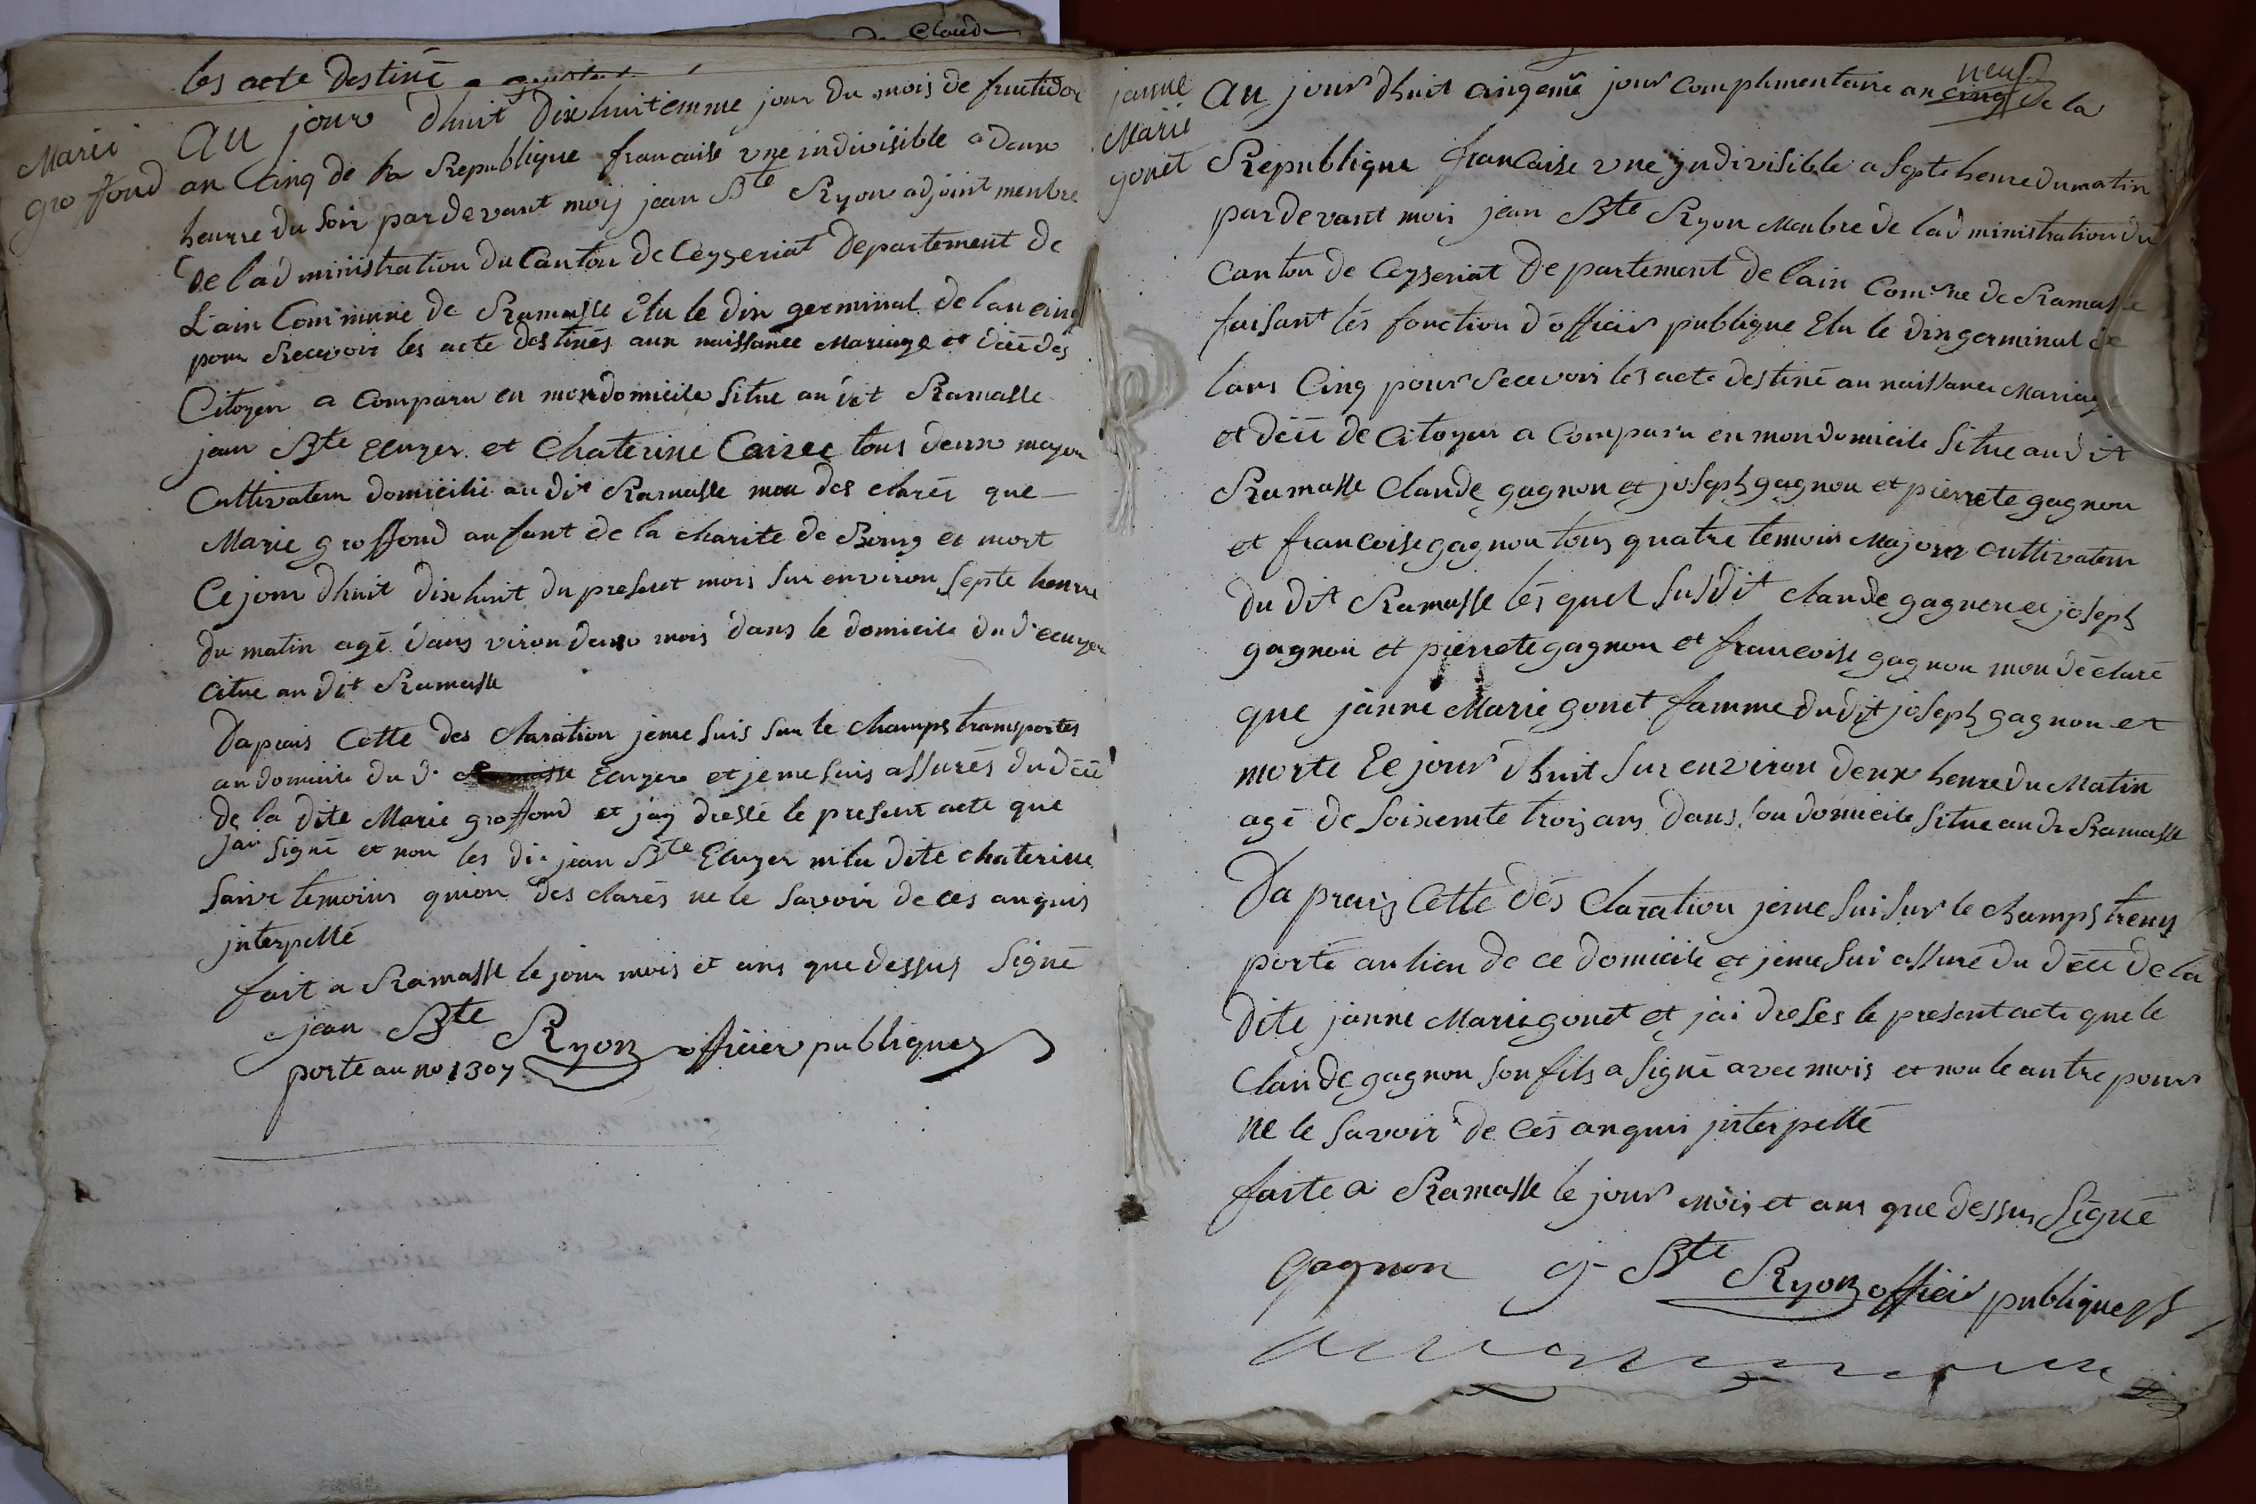 Claude
les acte destiné
Marie
gro ffond
au jour dhuit dixhuitemme jour du mois de fructidor
an Cinq de la Republique francaise une indivisible a deux
heurre du soir pardevant moy jean Bte Ryon adjoint menbre
de lad ministration du Canton de Ceyzeriat departement de
Lain Commune de Ramasse Elu le dix germinal de lan cinq
pour Recevoir les acte destinés aux naissance Mariage et décé des
Citoyen a Comparu en mon domicile situe au dit Ramasse
jean Bte ecuyer et Chaterine tous deux majeur
Cultivateur domicilié au dit Ramasse mon des clarés que
Marie groffond anfant de la charite de Bourg et mort
Ce jour dhuit dixhuit du present mois sur environ septe heurre
du matin agé dans viron deux mois dans le domicile du d. ecuyer
citue au dit Ramasse
Dapreais Cette des claration jeme suis sur le champs transportes
au domicile du d. Ecuyer et jeme suis assurés du décé
de la dite Marie groffond et jay dressé le present acte que
jai signé et non les di. jean Bte Ecuyer ni la dite chaterine
temoins quion des clarés ne le savoir de ces anquis
jnterpellé
fait a Ramasse le jour mois et ans que dessus signé
jean Bte Ryon officier publique
porte au no 1307
janne
Marie
gonet
neuf
au jour dhuit cinqeme jour complimentaire an cinq de la
Republique francaise une jndivisible a septe heure du matin
pardevant mois jean Bte Ryon Menbre de lad ministration du
canton de Ceyseriat departement de lain Comune de Ramasse
faisant lés fonction dofficier publique Elu le dix germinal de
lans Cinq pour Recevoir les acte destiné au naissance Mariage
et décé de Citoyen a Comparu en mon domicile situe au dit
Ramasse Claude gagnon et joseph gagnon et pierrete gagnon
et francoise gagnon tous quatre temoin Majeur cultivateur
du dit Ramasse lés quel susdit claude gagnon et joseph
gagnon et pierrete gagnon et francoise gagnon mon déclaré
que janne Marie gonet famme du dit joseph gagnon et
morte Ce jour dhuit sur environ deux heure du Matin
agé de soixente trois ans dans son domicile situe au di Ramasse
Da preais Cette dés Claration jeme sui sur le champs trens
porté au lieu de ce domicile et jeme sui assuré du décé de la
dite janne Marie gonet et jai dreses le present acte que le
Claude gagnon son fils a signé avec mois et non le autre pour
ne le savoir de cés anquis jnterpellé
faite a Ramasse le jour mois et ans que dessus Signé
gagnon j Bte Ryon officier publique